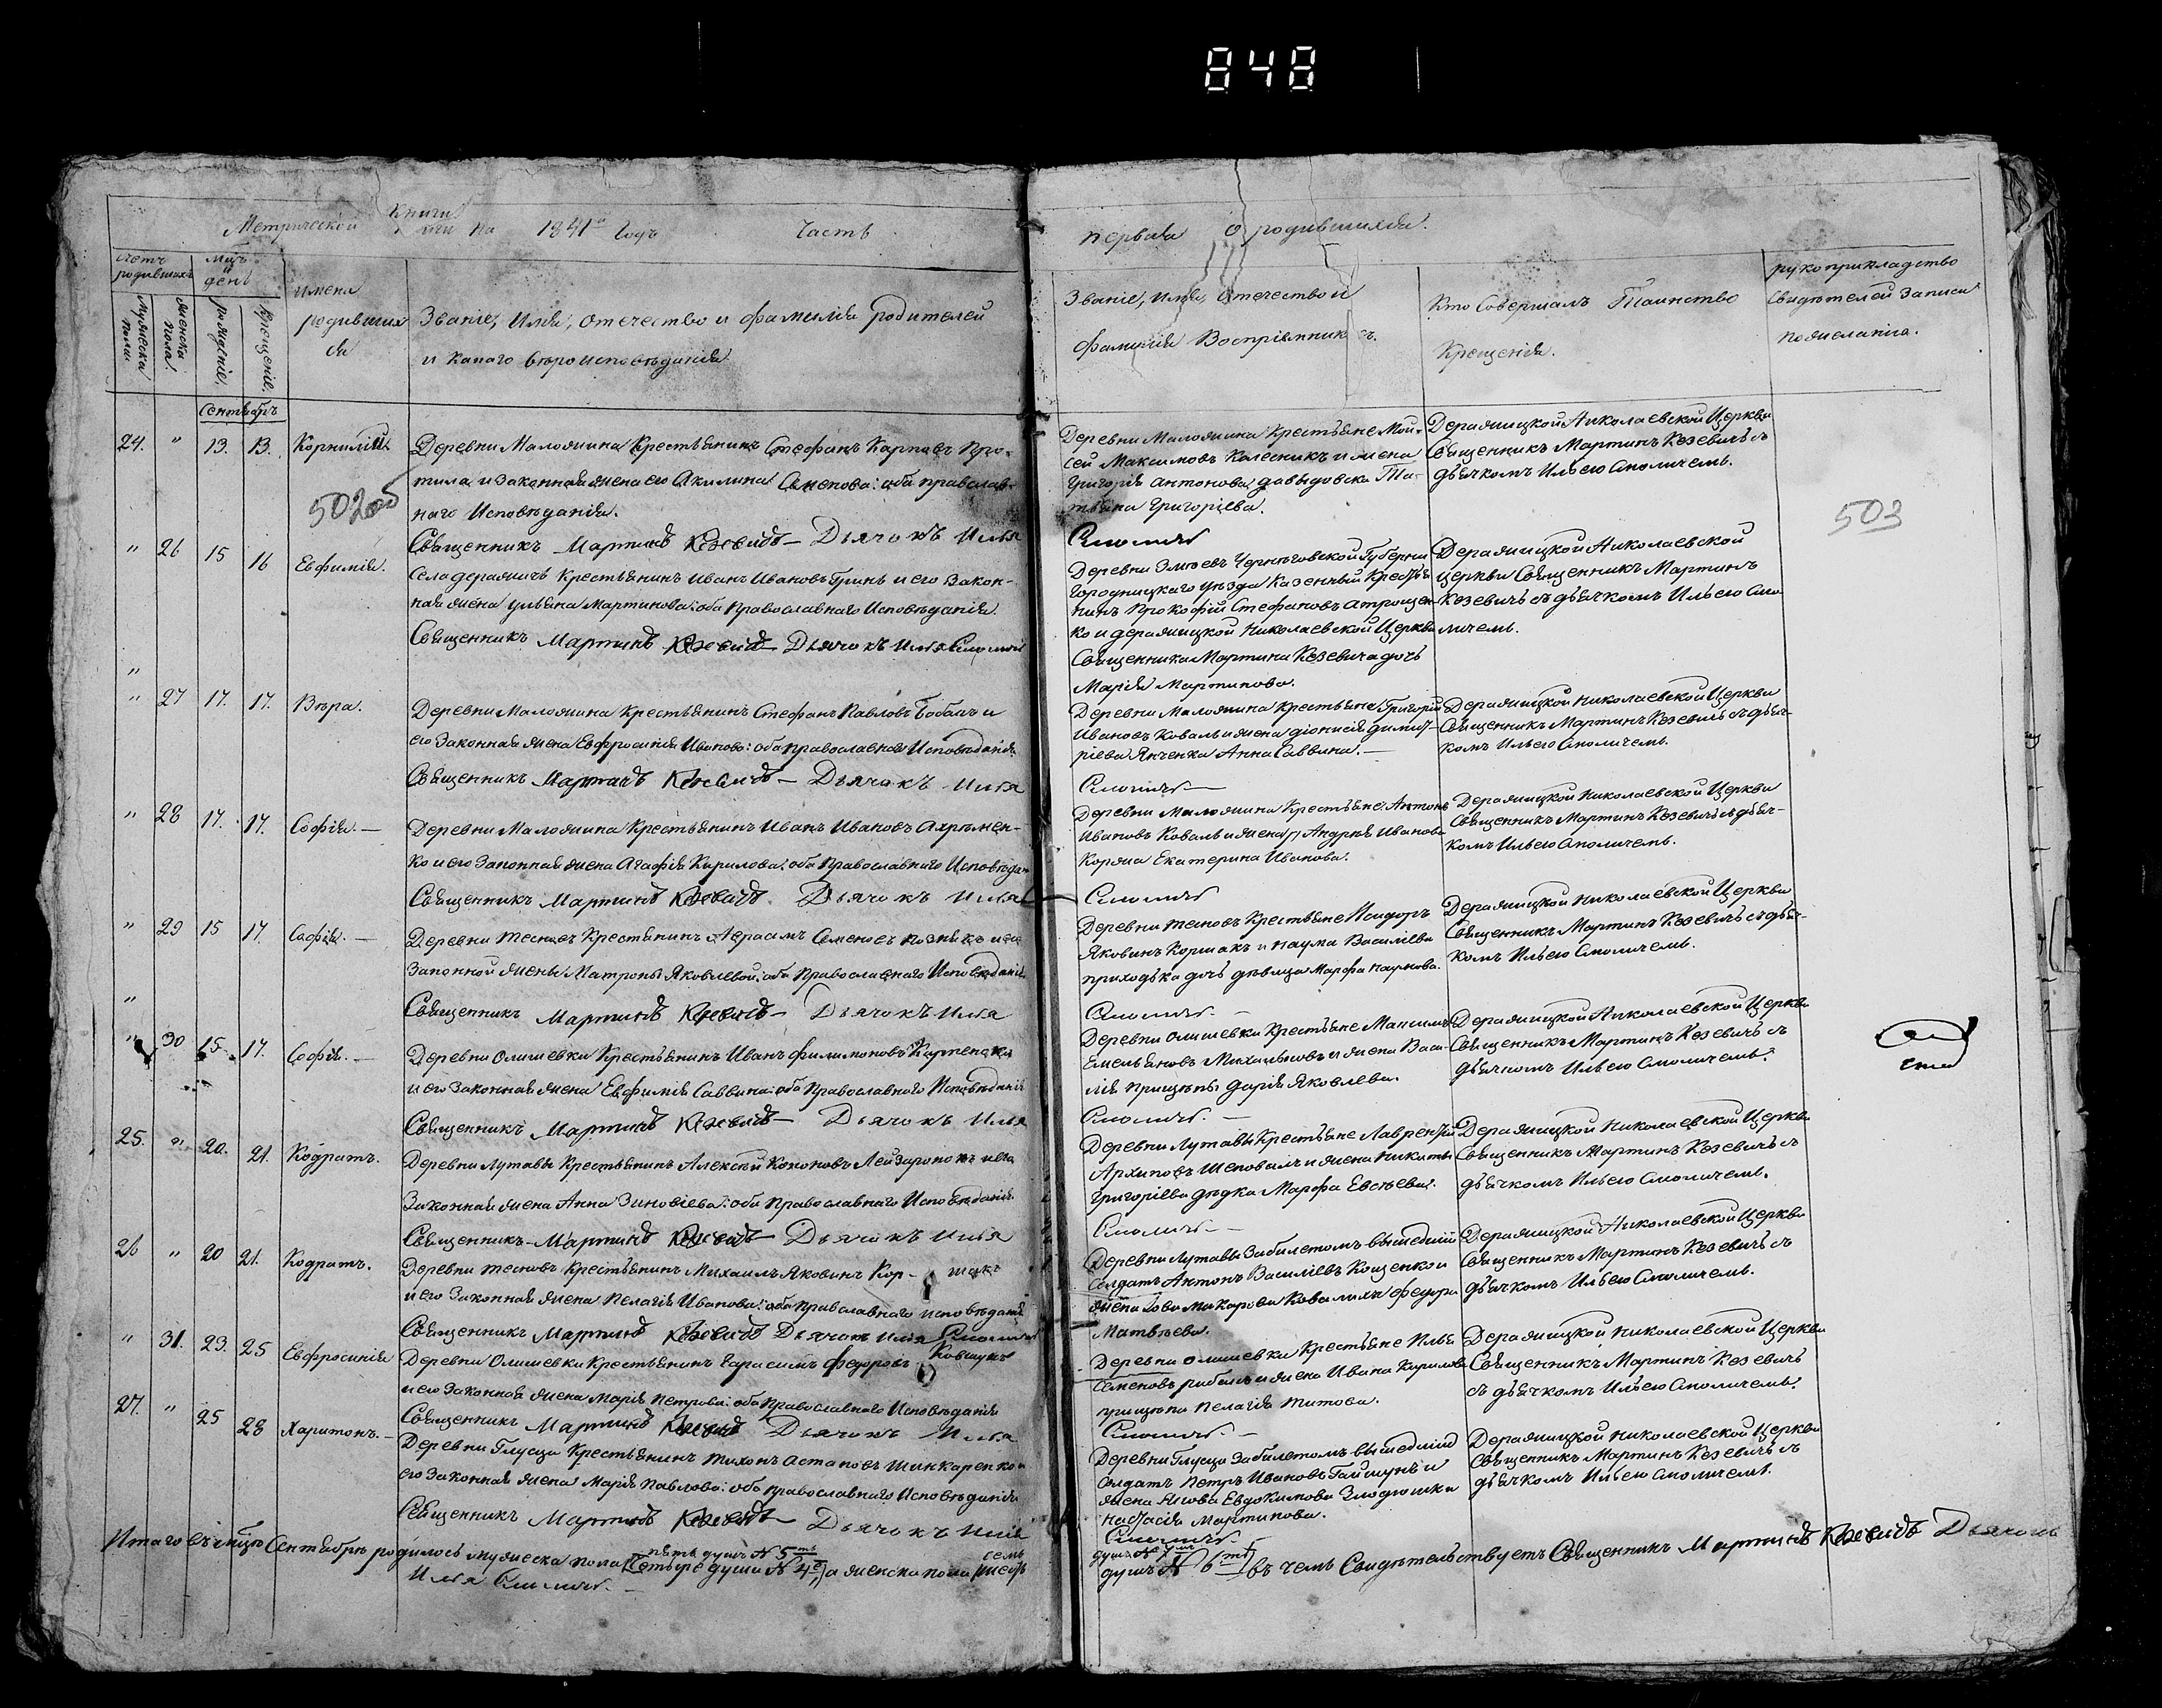 848
Метрической Книги на 1841й годъ Часть
первая о родившихся.
Счетъ родившихся
Мужеска пола
женска пола.
Мцъ и день
рожденіе.
Крещеніе.
имена родившихся
Званіе, имя, отечество и фамилія родителей
и какаго вѣроисповѣданія
Званіе, имя, отечество и
фамилія Воспріемниковъ.
Кто Совершалъ Таинство
Крещенія.
рукоприкладство
Свидѣтелей Записи
по желанію.
Сентябрь
24. " 13. 13. Корнилій.
Деревни Маложина Крестьянинъ Стефанъ Карповъ Про-
тила и Законная жена его Акилина Семенова: оба православ-
наго Исповѣданія.
Священникъ Мартинъ Кезевичъ — Дьячокъ Илья
Деревни Маложина Крестьяне Мой-
сей Максимовъ Колесникъ и жена
Григорія Антонова давыдовска Та-
тьяна Григоріева.
Смоличъ
Деражицкой Николаевской Церкви
Священникъ Мартинъ Кезевичъ съ
дьячкомъ Ильею Смоличемъ.
502об
503
" 26 15 16 Евфимія.
Села деражичъ Крестьянинъ Иванъ Ивановъ Гринь и его Закон-
ная жена ульяна Мартинова: оба Православнаго Исповѣданія
Священникъ Мартинъ Кезевичъ — Дьячокъ Илья Смоличъ
Деревни Черниговской Губерніи
Городницкаго уѣзда Казенный Крестья-
нинъ Прокофій Стефановъ Атрощен-
ко и деражицкой Николаевской Церкви
Священника Мартина Кезевича дочь
Марія Мартинова.
Деражицкой Николаевской
церкви Священникъ Мартинъ
Кезевичъ съ дьячкомъ Ильею Смо-
личемъ.
"
" 27 17. 17. Вѣра.
Деревни Маложина Крестьянинъ Стефанъ Павловъ Бобанъ и
его Законная жена Евфросинія Иванова: оба православнаго Исповѣданія.
Священникъ Мартинъ Кезевичъ — Дьячокъ Илья
Деревни Маложина Крестьяне Григорій
Ивановъ Коваль и жена діонисія димит-
ріева Янченка Анна Саввина. —
Смоличъ —
Деражицкой Николаевской Церкви
Священникъ Мартинъ Кезевичъ съ дьяч-
комъ Ильею Смоличемъ.
" 28 17. 17. Софія. —
Деревни Маложина Крестьянинъ Иванъ Ивановъ Ахремен-
ко и его Законная жена Агафія Кирилова: оба Православнаго Исповѣдан
Священникъ Мартинъ Кезевичъ. Дьячокъ Илья
Деревни Маложина Крестьяне Антонъ
Ивановъ Коваль и жена Андрея Иванова
Коржа Екатерина Иванова.
Смоличъ
Деражицкой Николаевской Церкви
Священникъ Мартинъ Кезевичъ съ дьяч-
комъ Ильею Смоличемъ.
" 29 15 17. Софія. —
Деревни тесновъ Крестьянинъ Аврамъ Семеновъ Познякъ и его
Законной жены Матроны Яковлевой: оба Православнаго Исповѣданія
Священникъ Мартинъ Кезевичъ — Дьячокъ Илья
Деревни тесновъ Крестьяне Исидоръ
Яковинъ Коршакъ и наума Василіева
приходька дочь дѣвица Марфа наумова.
Смоличъ. —
Деражицкой Николаевской Церкви
Священникъ Мартинъ Кезевичъ съ дьяч-
комъ Ильею Смоличемъ.
"
" 30 15. 17. Софія. —
Деревни Олишевки Крестьянинъ Иванъ филимоновъ
и его Законная жена Евфимія Саввина: оба Православнаго Исповѣданія
Священникъ Мартинъ Кезевичъ — Дьячокъ Илья
Деревни Олишевки Крестьяне Максимъ
Емельяновъ и жена Васи-
лія Прищепы Дарія Яковлева.
Смоличъ. —
Деражицкой Николаевской Церкви
Священникъ Мартинъ Кезевичъ съ
дьячкомъ Ильею Смоличемъ.
25. " 20. 21. Кодратъ.
Деревни Лутавы Крестьянинъ Алексѣй Кононовъ и его
Законная жена Анна Зиновіева: оба Православнаго Исповѣданія
Священникъ Мартинъ Кезевичъ — Дьячокъ Илья
Деревни Лутавы Крестьяне Лаврентій
Архиповъ Шеповалъ и жена Никиты
Григоріева дѣдка Марфа Евсѣева.
Смоличъ —
Деражицкой Николаевской Церкви
Священникъ Мартинъ Кезевичъ съ
дьячкомъ Ильею Смоличемъ.
26 " 20 21. Кодратъ.
Деревни тесновъ Крестьянинъ Михаилъ Яковинъ Кор- шакъ
и его Законная жена Пелагія Иванова: оба православнаго исповѣданія
Священникъ Мартинъ Кезевичъ Дьячокъ Илья Смоличъ
Деревни Лутавы За билетомъ вышедшій
Солдатъ Антонъ Василіевъ Кощенко и
жена Макарова федора
Матвѣева.
Деражицкой Николаевской Церкви
Священникъ Мартинъ Кезевичъ съ
дьячкомъ Ильею Смоличемъ.
" 31. 23. 25 Евфросинія
Деревни Олишевки Крестьянинъ Гарасимъ федоровъ Ковшукъ
и его Законная жена Марія Петрова: оба Православнаго Исповѣданія
Священникъ Мартинъ Кезевичъ Дьячокъ Илья
Деревни Олишевки Крестьяне Илья
Семеновъ рибалъ и жена Ивана Кирилова
прищепы Пелагія Титова.
Смоличъ. —
Деражицкой Николаевской Церкви
Священникъ Мартинъ Кезевичъ
съ дьячкомъ Ильею Смоличемъ.
27. " 25 28 Харитонъ. —
Деревни Глуща Крестьянинъ Тихонъ Астаповъ Шинкаренко и
его Законная жена Марія Павлова: оба православнаго Исповѣданія
Священникъ Мартинъ Кезевичъ — Дьячокъ Илья
Деревни Глуща За билетомъ вышедшій
Солдатъ Петръ Ивановъ Гайшунъ и
жена Якова Евдокимова Злодюшка
настасія Мартинова.
Смоличъ. —
Деражицкой Николаевской Церкви
Священникъ Мартинъ Кезевичъ съ
дьячкомъ Ильею Смоличемъ.
Итого въ мцѣ Сентябрѣ родилось мужеска пола пять душъ № 5 (Четыре души № 4) а женска пола семь (шесть
душъ № 7 душъ № 6) въ чемъ Свидѣтельствуетъ Священникъ Мартинъ Кезевичъ Дьячокъ
Илья Смоличъ. —